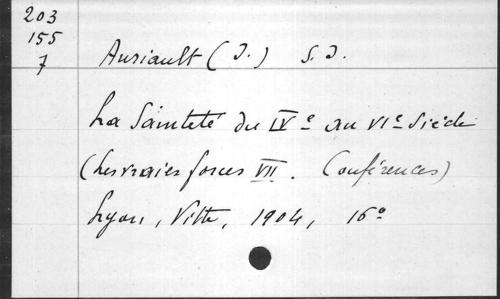 203
155
7
Auriault (J.) S.J.
La Sainteté du IVe au VIe Siècle
(Les vraies forces VII. Conférences)
Lyon, Vitte, 1904, 16º